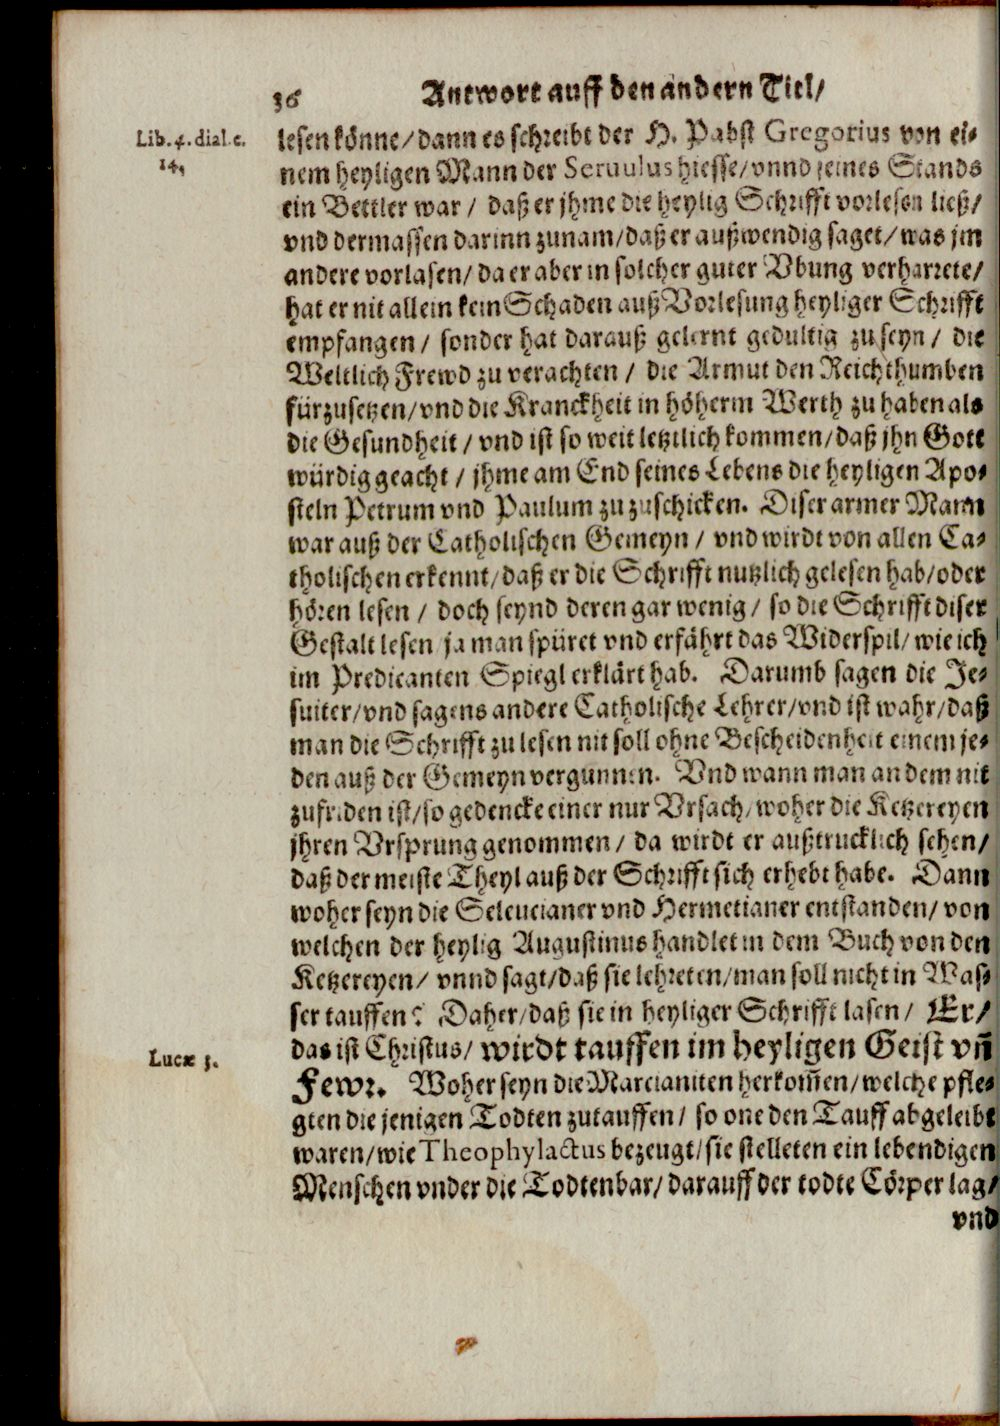 36 Antwort auff den andern Titl/
Lib. 4. dial. c. 14.
lesen könne/dann es schreibt der H. Pabst Gregorius von ei-
nem heyligen Mann der Seruulus hiesse/vnnd seines Stands
ein Bettler war / daß er jhme die heylig Schrifft vorlesen ließ/
vnd dermassen darinn zunam/daß er außwendig saget/was jm
andere vorlasen/da er aber in solcher guter Vbung verharrete/
hat er nit allein kein Schaden auß Vorlesung heyliger Schrifft
empfangen / sonder hat darauß gelernt gedultig zu seyn / die
Weltlich Frewd zu verachten / die Armut den Reichthumben
fürzusetzen/vnd die Kranckheit in höherm Werth zu haben als
die Gesundheit / vnd ist so weit letztlich kommen/daß jhn Gott
würdig geacht / jhme am End seines Lebens die heyligen Apo-
steln Petrum vnd Paulum zu zuschicken. Diser armer Mann
war auß der Catholischen Gemeyn / vnd wirdt von allen Ca-
tholischen erkennt/daß er die Schrifft nutzlich gelesen hab/oder
hören lesen / doch seynd deren gar wenig / so die Schrifft diser
Gestalt lesen ja man spüret vnd erfährt das Widerspil/ wie ich
im Predicanten Spiegl erklärt hab. Darumb sagen die Je-
suiter/vnd sagens andere Catholische Lehrer/vnd ist wahr/daß
man die Schrifft zu lesen nit soll ohne Bescheidenheit einem je-
den auß der Gemeyn vergunnen. Vnd wann man an dem nit
zufriden ist/so gedencke einer nur Vrsach/woher die Ketzereyen
jhren Vrsprung genommen / da wirdt er außtrucklich sehen/
daß der meiste Theyl auß der Schrifft sich erhebt habe. Dann
woher seyn die Seleucianer vnd Hermetianer entstanden/ von
welchen der heylig Augustinus handlet in dem Buch von den
Ketzereyen/ vnnd sagt/daß sie lehreten/man soll nicht in Was-
ser tauffen? Daher/daß sie in heyliger Schrifft lasen / Er/
Lucæ 3.
das ist Christus/ wirdt tauffen im heyligen Geist vñ
Fewr. Woher seyn die Marcianiten herkom̃en/welche pfle-
gten die jenigen Todten zutauffen / so one den Tauff abgeleibt
waren/wie Theophylactus bezeugt/sie stelleten ein lebendigen
Menschen vnder die Todtenbar/darauff der todte Cörper lag/
vnd